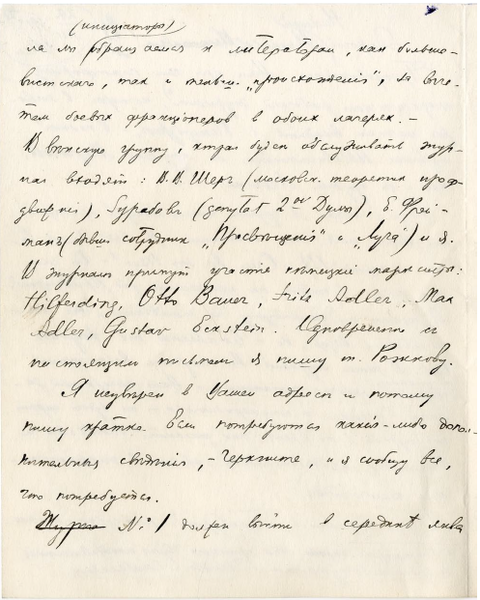 (инициаторы)
ла мы обращаемся к литераторам, как больше-
вистского, так и меньш. „происхожденiя", за выче-
том боевых фракцiонеров в обоих лагерях. —
В вѣнскую группу, которая будет обслуживать жур-
нал входят: В. В. Шер (московск. теоретик проф-
движенiя), Бурьянов (депутат 2ой Думы), Е. Фрей-
ман (бывш. сотрудник „Просвѣщенiя" и „Луча") и я.
В журналѣ примут участiе нѣмецкiе марксисты:
Hilferding, Otto Bauer, Fritz Adler, Max
Adler, Gustav Eckstein. Одновременно с
настоящим письмом я пишу т. Рожкову.
Я неувѣрен в Вашем адресѣ и потому
пишу кратко. Если потребуются какiя-либо допол-
нительныя свѣдѣнiя, — черкните, и я сообщу все,
что потребуется.
Журна № 1 должен выйти в серединѣ янва